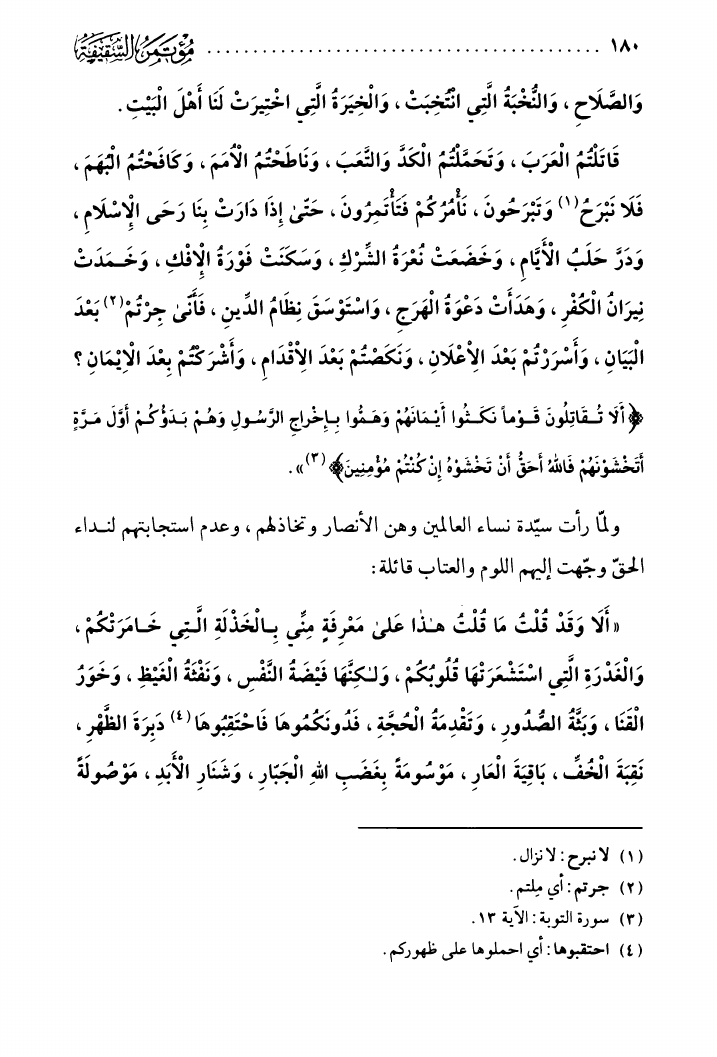 ١٨٠ ........................................ مُؤتَمَرُ السَّقِيفَةِ
وَالصَّلَاحِ ، وَالنُّخْبَةُ الَّتِي انْتُخِبَتْ ، وَالْخِيَرَةُ الَّتِي اخْتِيرَتْ لَنَا أَهْلَ الْبَيْتِ .
قَاتَلْتُمُ الْعَرَبَ ، وَتَحَمَّلْتُمُ الْكَدَّ وَالتَّعَبَ ، وَنَاطَحْتُمُ الْأُمَمَ ، وَكَافَحْتُمُ الْبُهَمَ ،
فَلَا نَبْرَحُ (١) وَتَبْرَحُونَ ، نَأْمُرُكُمْ فَتَأْتَمِرُونَ ، حَتّىٰ إِذَا دَارَتْ بِنَا رَحَى الْإِسْلَامِ ،
وَدَرَّ حَلَبُ الْأَيَّامِ ، وَخَضَعَتْ نُعْرَةُ الشِّرْكِ ، وَسَكَنَتْ فَوْرَةُ الْإِفْكِ ، وَخَـمَدَتْ
نِيرَانُ الْكُفْرِ ، وَهَدَأَتْ دَعْوَةُ الْهَرَجِ ، وَاسْتَوْسَقَ نِظَامُ الدِّينِ ، فَأَنّىٰ جِرْتُمْ (٢) بَعْدَ
الْبَيَانِ ، وَأَسْرَرْتُمْ بَعْدَ الْإِعْلَانِ ، وَنَكَصْتُمْ بَعْدَ الْإِقْدَامِ ، وَأَشْرَكْتُمْ بِعْدَ الْإِيْمَانِ ؟
﴿ أَلَا تُـقَاتِلُونَ قَـوْماً نَكَـثُوا أَيْمَانَهُمْ وَهَمُّوا بِـإِخْراجِ الرَّسُولِ وَهُمْ بَدَؤُكُمْ أَوَّلَ مَـرَّةٍ
أَتَخْشَوْنَهُمْ فَاللهُ أَحَقُّ أَنْ تَخْشَوْهُ إِنْ كُنْتُمْ مُؤْمِنِينَ ﴾ (٣) » .
ولمّا رأت سيّدة نساء العالمين وهن الأنصار وتخاذلهم ، وعدم استجابتهم لنـداء
الحقّ وجّهت إليهم اللوم والعتاب قائلة :
« أَلَا وَقَدْ قُلْتُ مَا قُلْتُ هـٰذَا عَلىٰ مَعْرِفَةٍ مِنِّي بِـالْخَذْلَةِ الَّـتِي خَـامَرَتْكُمْ ،
وَالْغَدْرَةِ الَّتِي اسْتَشْعَرَتْهَا قُلُوبُكُمْ ، وَلـٰكِنَّهَا فَيْضَةُ النَّفْسِ ، وَنَفْثَةُ الْغَيْظِ ، وَخَوَرُ
الْقَنَا ، وَبَثَّةُ الصُّدُورِ ، وَتَقْدِمَةُ الْحُجَّةِ ، فَدُونَكُمُوهَا فَاحْتَقِبُوهَا (٤) دَبِرَةَ الظَّهْرِ ،
نَقِبَةَ الْخُفِّ ، بَاقِيَةَ الْعَارِ ، مَوْسُومَةً بِغَضَبِ اللهِ الْجَبَّارِ ، وَشَنَارِ الْأَبَدِ ، مَوْصُولَةً
(١) لا نبرح : لا نزال .
(٢) جرتم : أي مِلتم .
(٣) سورة التوبة : الآية ١٣ .
(٤) احتقبوها : أي احملوها على ظهوركم .